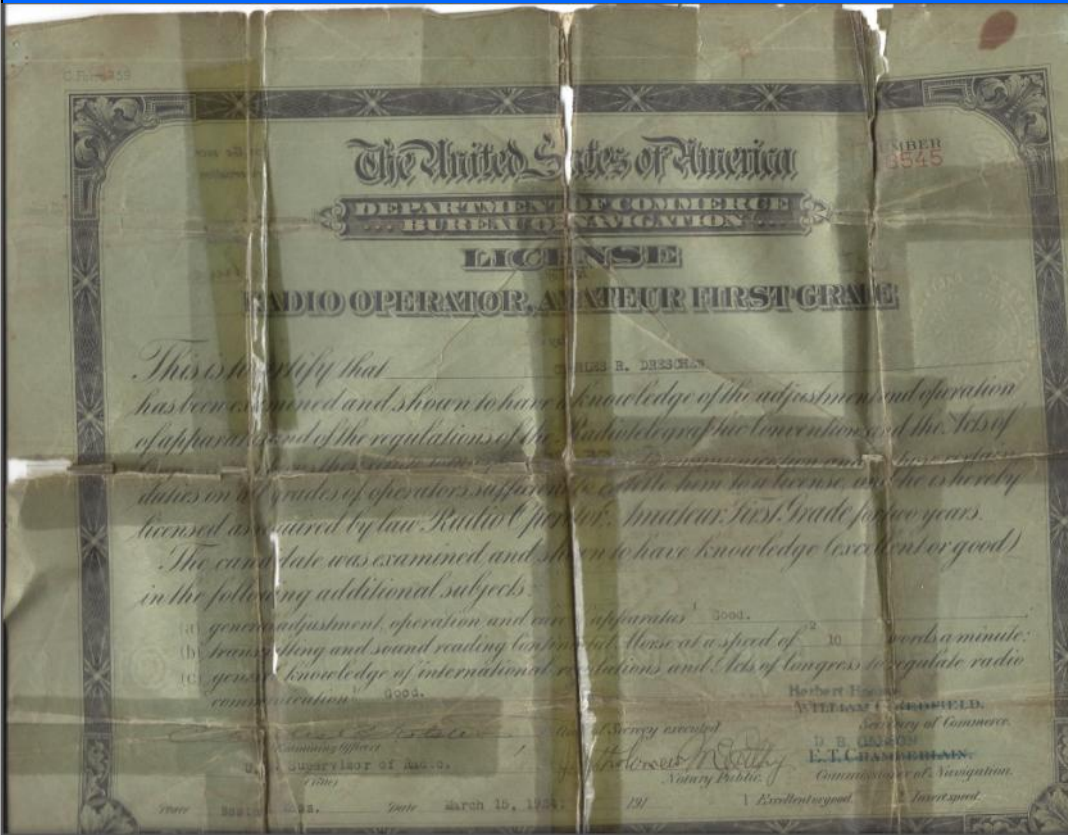 The United States of America
NUMBER
DEPARTMENT OF COMMERCE
BUREAU OF NAVIGATION
LICENSE
RADIO OPERATOR, AMATEUR FIRST GRADE
This is to certify that CHARLES R.
has been examined and shown to have a knowledge of the adjustment and operation
of apparatus and of the regulations of the Radiotelegraphic Convention and the Acts of
communication and
duties on all grades of operators sufficient to entitle him to a license, and he is hereby
licensed as required by law Radio Operator, Amateur First Grade for two years.
The candidate was examined and shown to have knowledge (excellent or good)
in the following additional subjects:
(a) general adjustment, operation and care of apparatus 1 Good.
(b) transmitting and sound reading Continental Morse at a speed of 2 10 words a minute;
(c) general knowledge of international regulations and Acts of Congress to regulate radio
communication 1 Good.
Herbert Hoover
WILLIAM C. REDFIELD.
Oath of Secrecy executed
Secretary of Commerce.
Examining Officer
D. B. CARSON
E. T. CHAMBERLAIN.
Supervisor of Radio.
Notary Public.
Commissioner of Navigation.
(Title)
Place Boston Mass. Date March 15, 191 1 Excellent or good. 2 Insert speed.